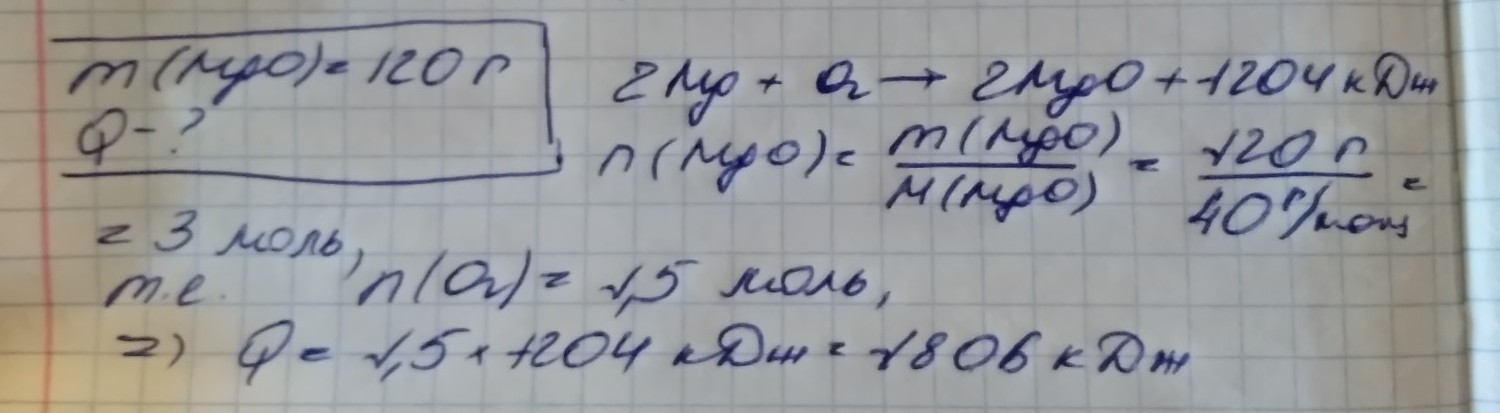 m(MgO) = 120 г
Q - ?
2Mg + O₂ → 2MgO + 1204 кДж
n(MgO) = m(MgO) / M(MgO) = 120 г / 40 г/моль =
= 3 моль,
т.е. n(O₂) = 1,5 моль,
=> Q = 1,5 × 1204 кДж = 1806 кДж